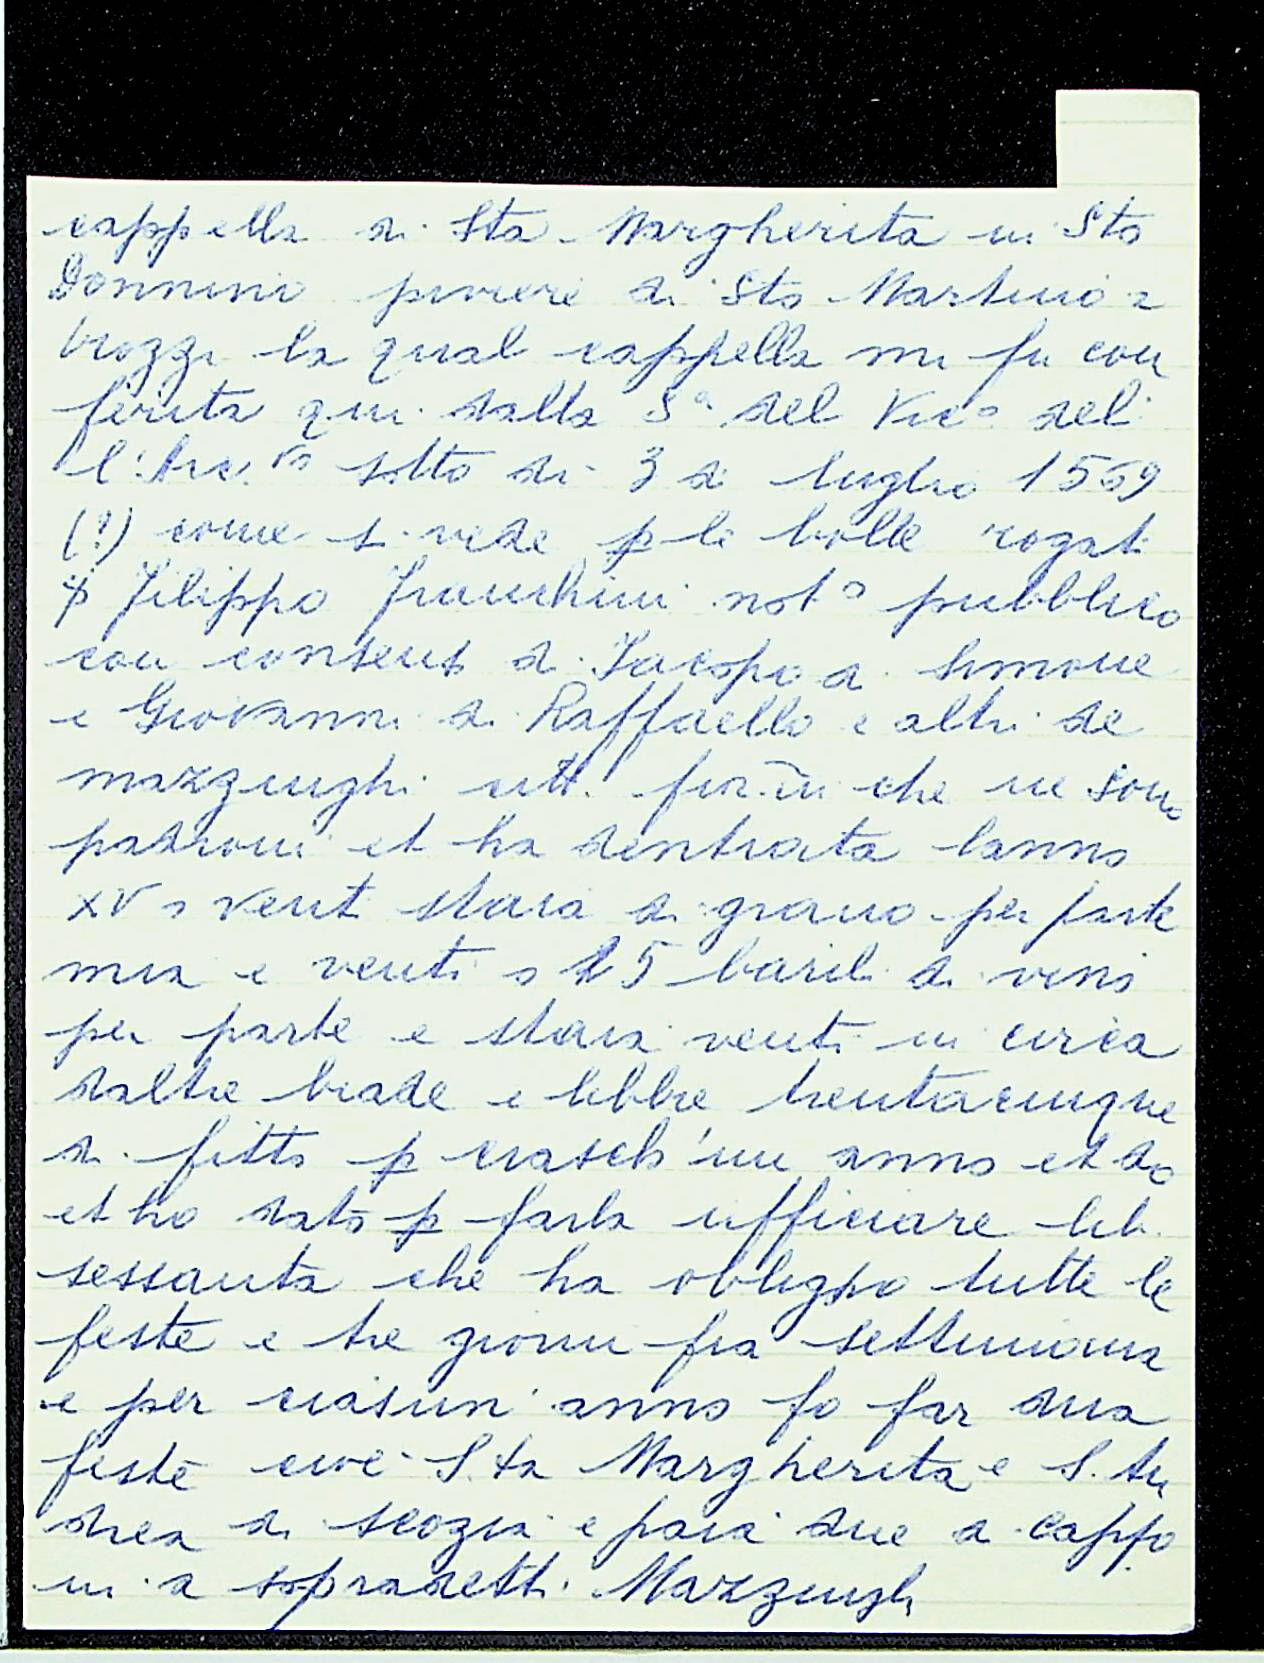 cappella di Sta Margherita in Sto
Donnino piviere di Sto Martino a
brozzi la qual cappella mi fu con
ferita qui dalla Sa del Vico del
l'Arc.vo sotto di 3 di luglio 1569
(?) come si vede p le bolle rogati
p Filippo Franchini noto pubblico
con consenso di Iacopo di Simone
e Giovanni di Raffaello e altri de
mazzinghi citt. fior.ni che ne sono
padroni et ha dentrata lanno
XV o venti staia di grano per parte
mia e venti o 25 barili di vino
per parte e staia venti in circa
daltre biade e libbre trentacinque
di fitto p ciascb'un anno et do
et ho dato p farla ufficiare lib.
sessanta che ha obligho tutte le
feste e tre giorni fra settimana
e per ciasun anno fo far dua
feste cioè S.ta Margherita e S. An
drea di scozia e paia due di cappo
ni a sopradetti Mazzinghi